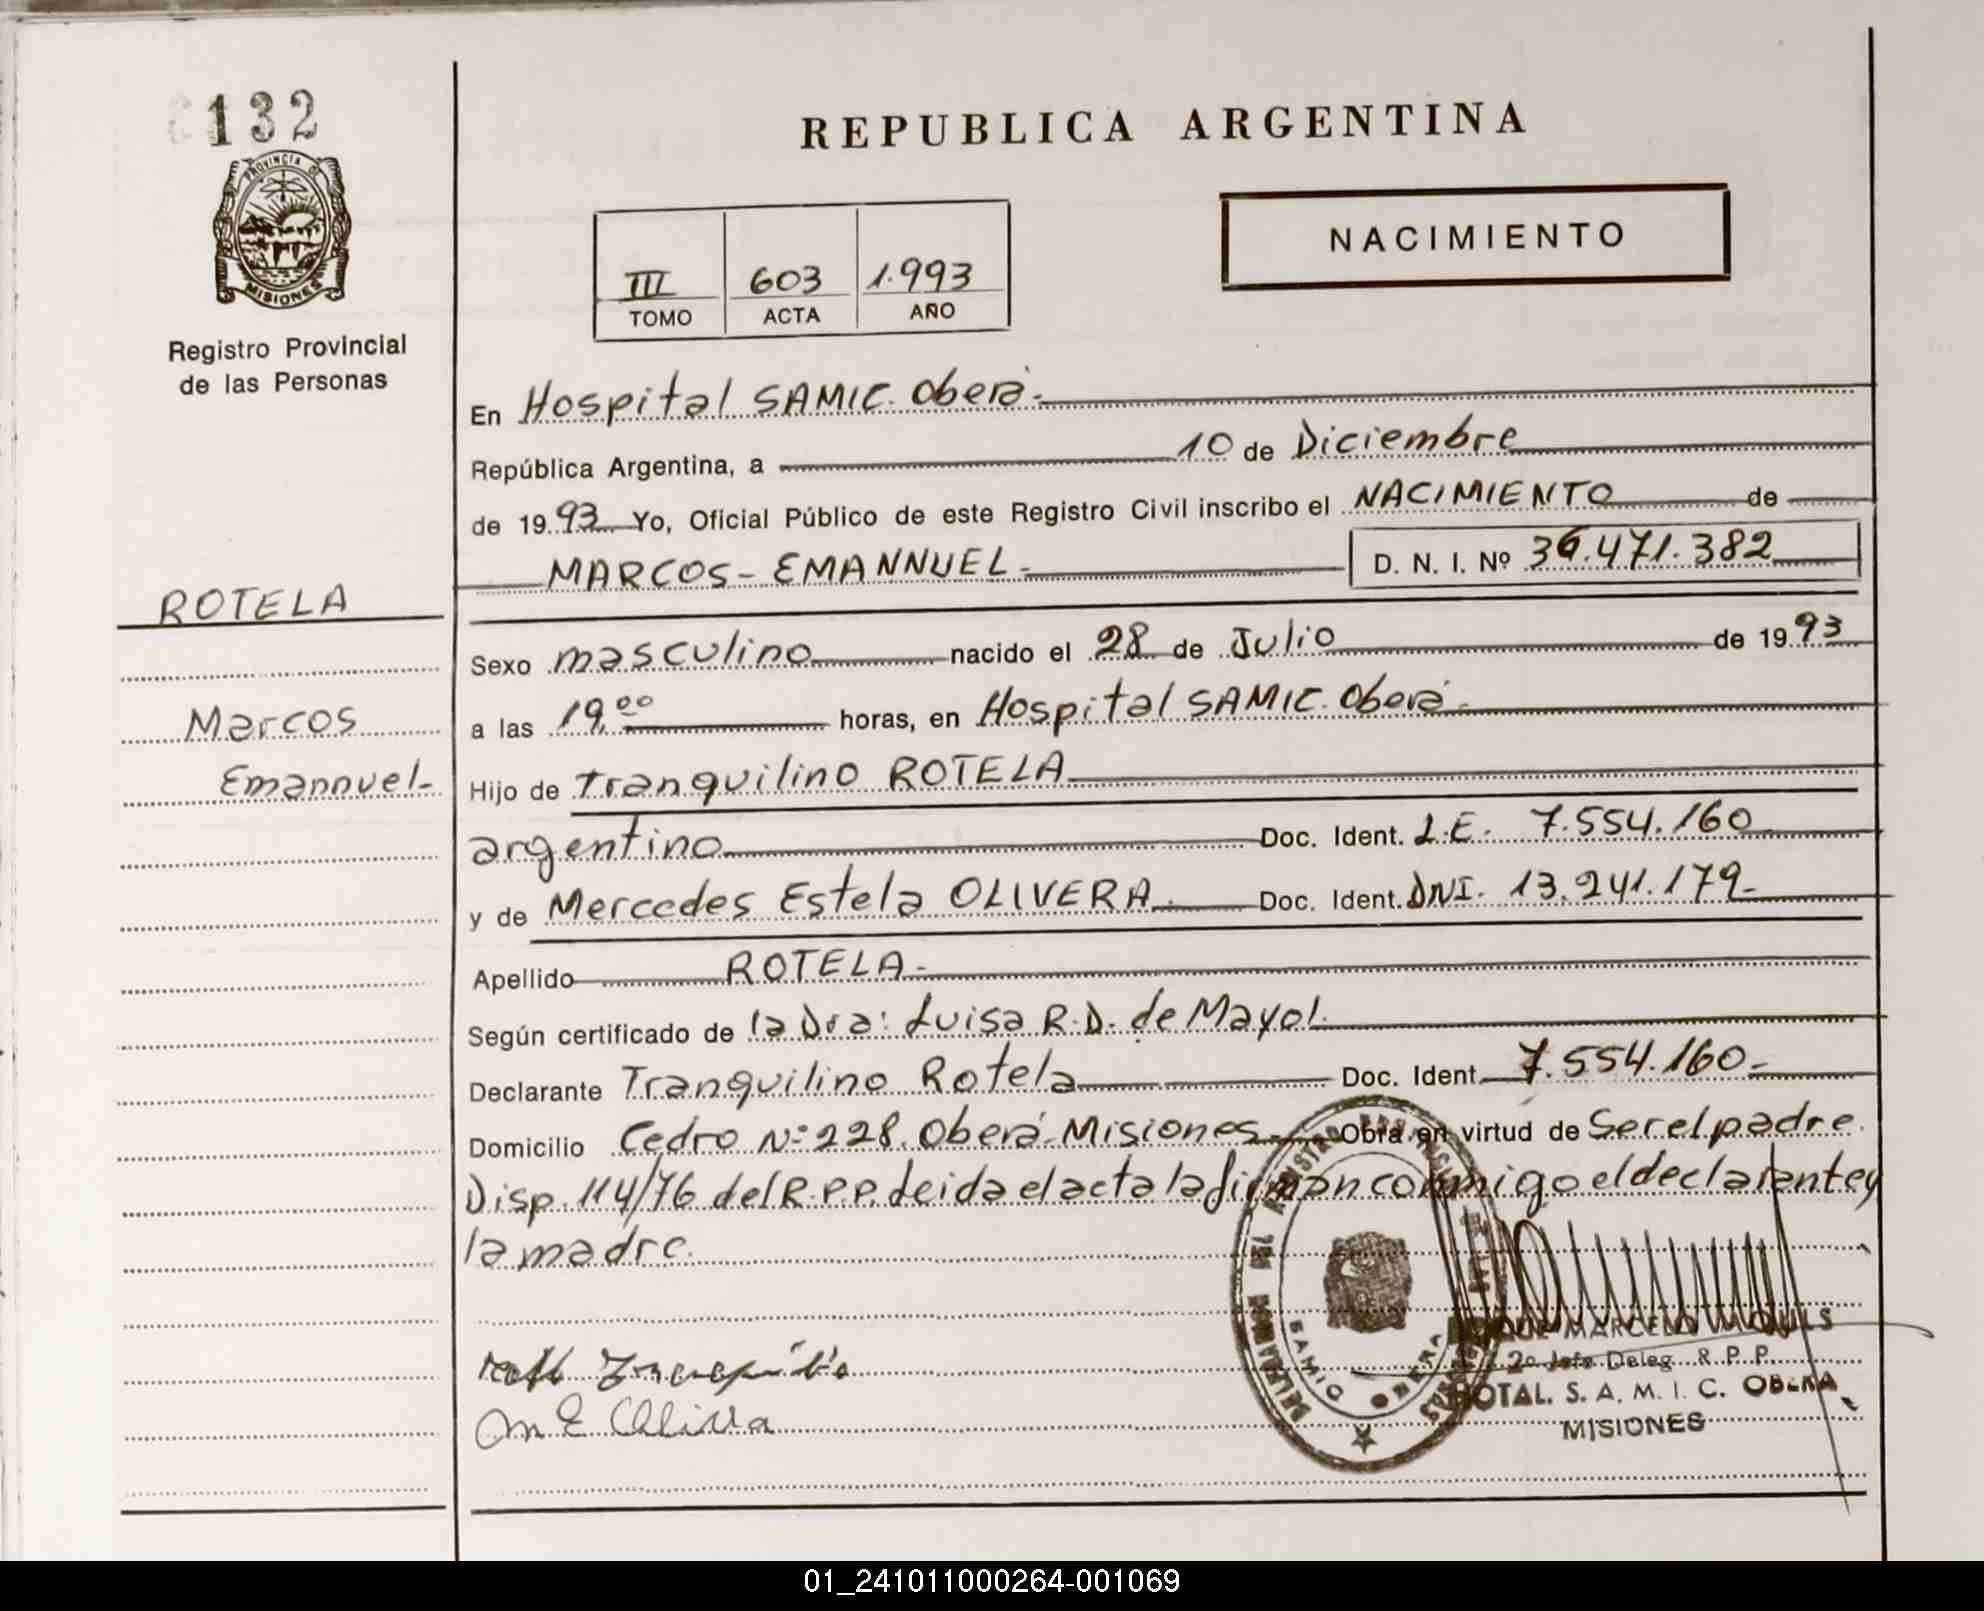 132
PROVINCIA DE
MISIONES
Registro Provincial
de las Personas
REPUBLICA ARGENTINA
NACIMIENTO
III 603 1.993
TOMO ACTA AÑO
En Hospital SAMIC. Oberá.-
República Argentina, a 10 de Diciembre
de 19 93 Yo, Oficial Público de este Registro Civil inscribo el NACIMIENTO de
MARCOS - EMANNUEL.- D. N. I. Nº 36.471.382
ROTELA
Marcos
Emannuel-
Sexo masculino nacido el 28 de Julio de 19 93
a las 19,00 horas, en Hospital SAMIC. Oberá.-
Hijo de Tranquilino ROTELA
argentino Doc. Ident. L.E. 7.554.160
y de Mercedes Estela OLIVERA. Doc. Ident. DNI. 13.241.179-
Apellido ROTELA.-
Según certificado de la Dra: Luisa R.D. de Mayol.
Declarante Tranquilino Rotela Doc. Ident. 7.554.160.-
Domicilio Cedro Nº 228. Oberá-Misiones.- Obra en virtud de Ser el padre.
Disp. 114/76 del R.P.P. Leida el acta la firman conmigo el declarante y
la madre.
M E Olivera
MARCELO
2º Jefe Deleg. R. P. P.
HOTAL. S. A. M. I. C. OBERA
MISIONES
01_241011000264-001069